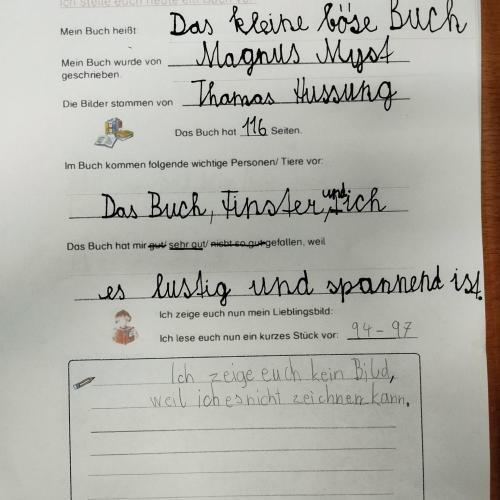 Ich stelle euch heute ein Buch vor:
Mein Buch heißt Das kleine böse Buch
Mein Buch wurde von geschrieben. Magnus Myst
Die Bilder stammen von Thomas Hussung
Das Buch hat 116 Seiten.
Im Buch kommen folgende wichtige Personen/ Tiere vor:
Das Buch, Finster, und ich
Das Buch hat mir gut/ sehr gut/ nicht so gut gefallen, weil
es lustig und spannend ist.
Ich zeige euch nun mein Lieblingsbild:
Ich lese euch nun ein kurzes Stück vor: 94-97
Ich zeige euch kein Bild,
weil ich es nicht zeichnen kann.